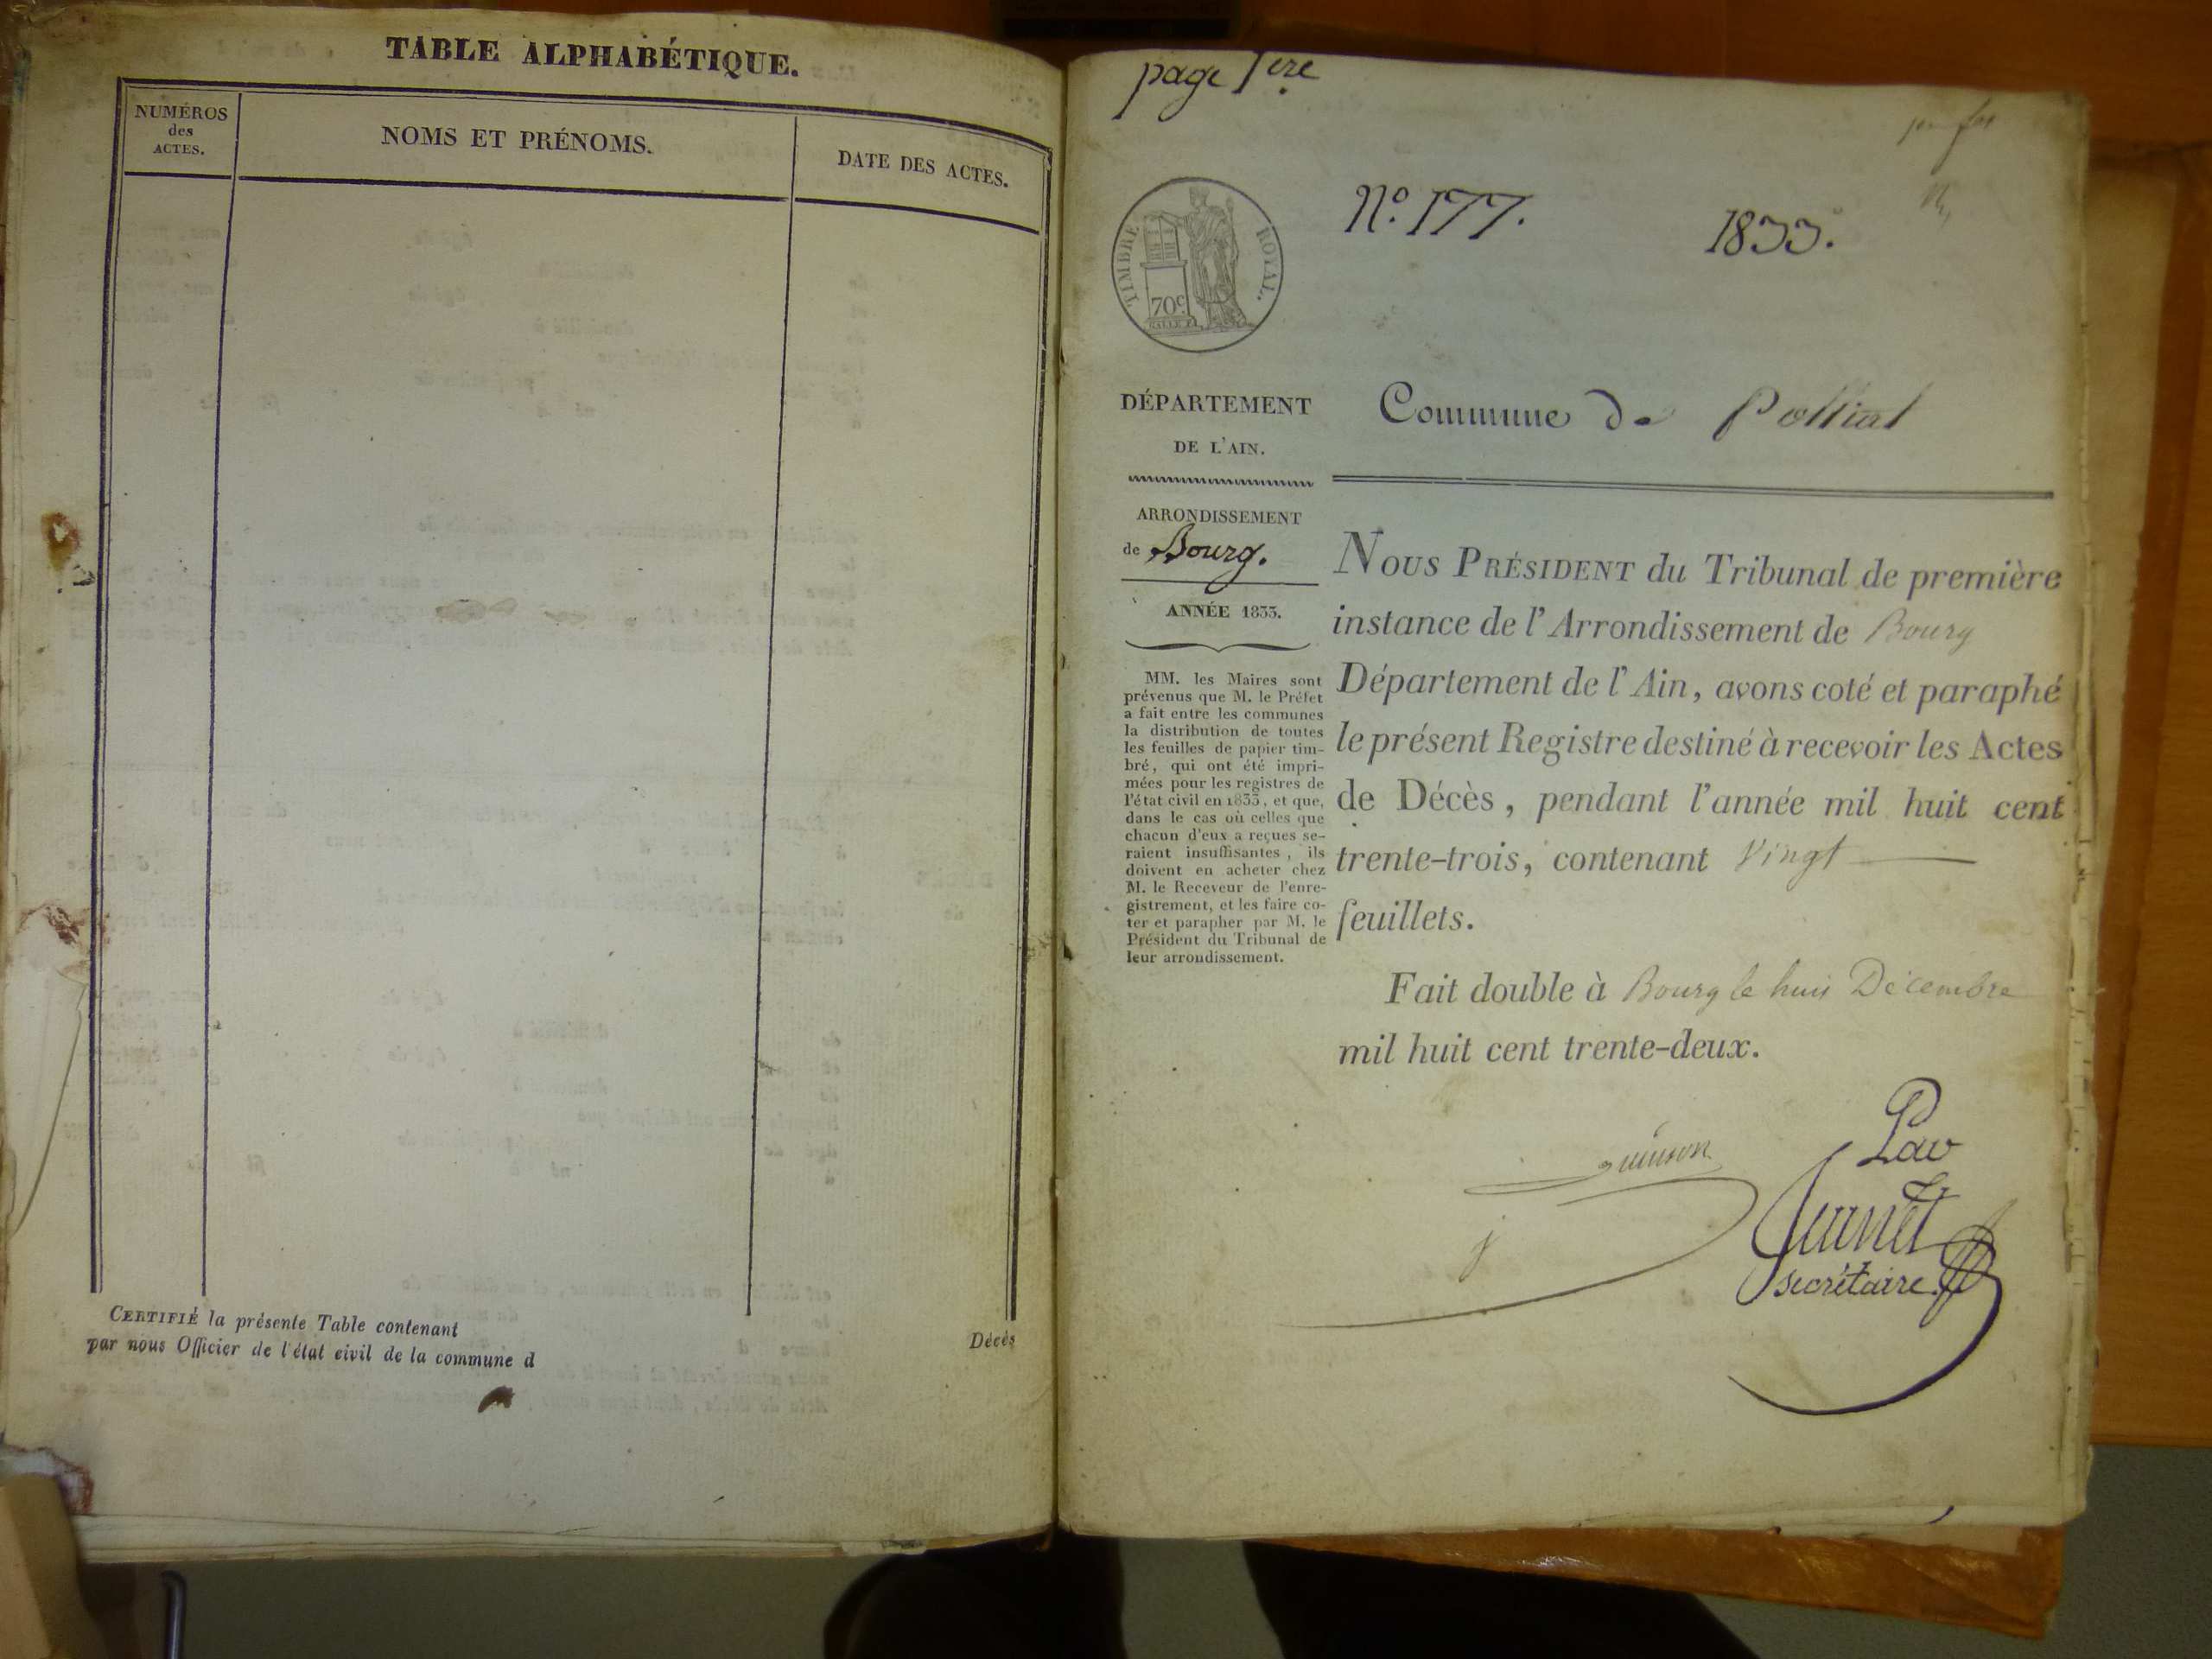 TABLE ALPHABÉTIQUE.
NUMÉROS
des
ACTES.
NOMS ET PRÉNOMS.
DATE DES ACTES.
CERTIFIÉ la présente Table contenant
par nous Officier de l'état civil de la commune d
Décès
page 1ere
N.o 177.
1833.
TIMBRE ROYAL.
70c
DÉPARTEMENT
DE L'AIN.
Commune de Polliat
ARRONDISSEMENT
de Bourg.
ANNÉE 1833.
MM. les Maires sont
prévenus que M. le Préfet
a fait entre les communes
la distribution de toutes
les feuilles de papier tim-
bré, qui ont été impri-
mées pour les registres de
l'état civil en 1833, et que,
dans le cas où celles que
chacun d'eux a reçues se-
raient insuffisantes, ils
doivent en acheter chez
M. le Receveur de l'enre-
gistrement, et les faire co-
ter et parapher par M. le
Président du Tribunal de
leur arrondissement.
NOUS PRÉSIDENT du Tribunal de première
instance de l'Arrondissement de Bourg
Département de l'Ain, avons coté et paraphé
le présent Registre destiné à recevoir les Actes
de Décès, pendant l'année mil huit cent
trente-trois, contenant Vingt
feuillets.
Fait double à Bourg le huit Décembre
mil huit cent trente-deux.
secrétaire